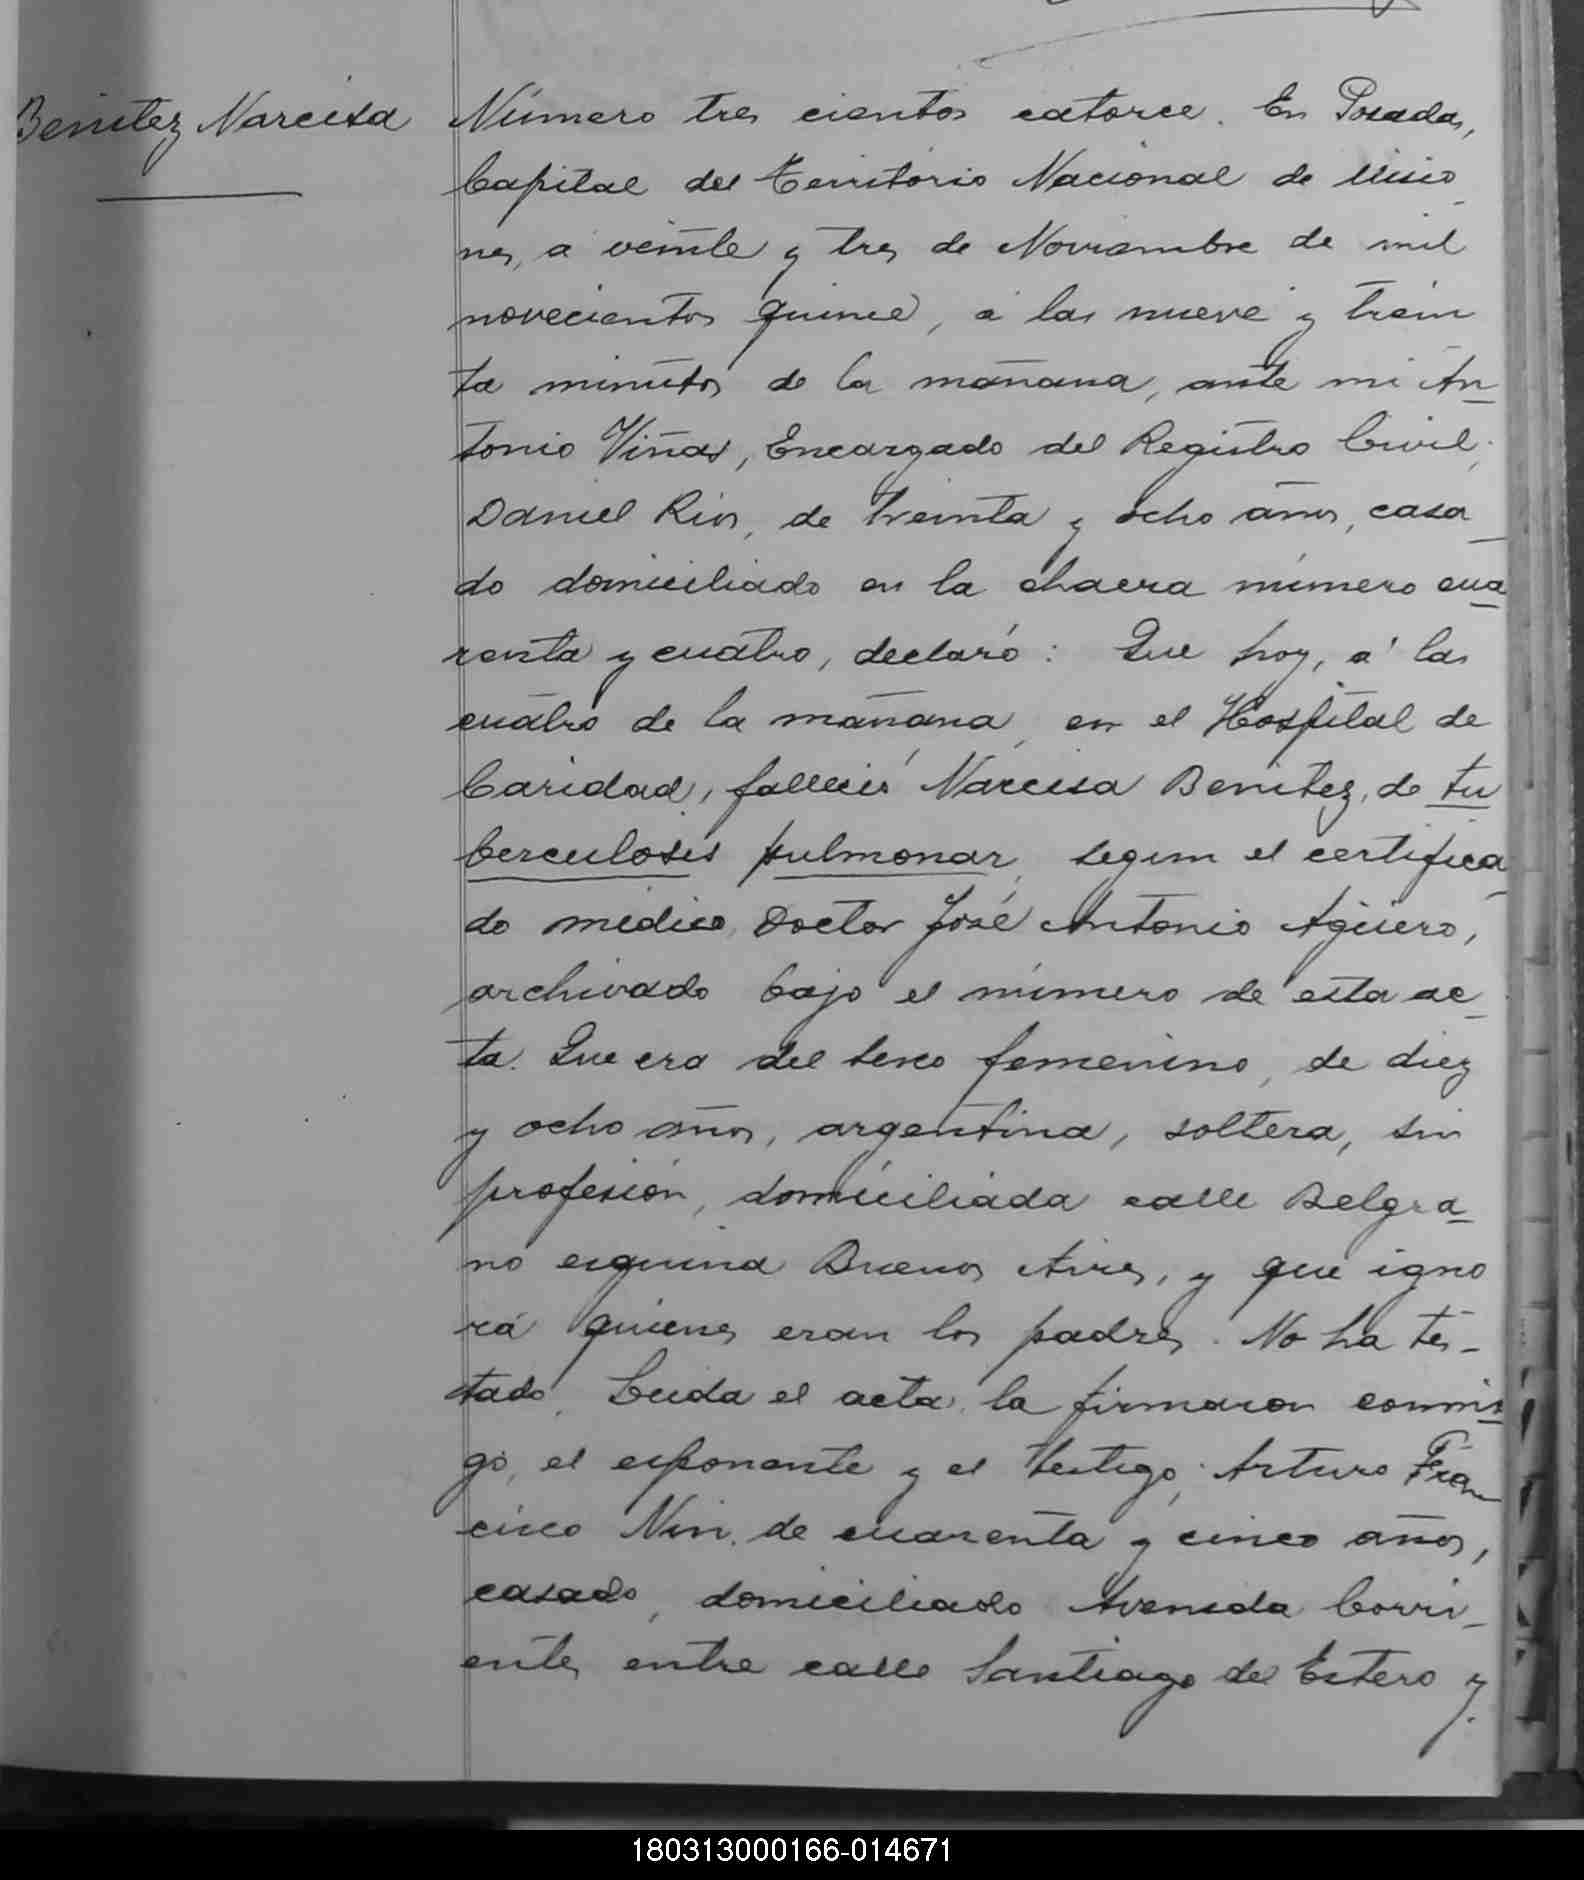 Benitez Narcisa
Número tres cientos catorce. En Posadas,
Capital del Territorio Nacional de Misio
nes, a veinte y tres de Noviembre de mil
novecientos quince, á las nueve y trein
ta minutos de la mañana, ante mi An-
tonio Viñas, Encargado del Registro Civil,
Daniel Rios, de treinta y ocho años, casa-
do domiciliado en la chacra número cua-
renta y cuatro, declaró: Que hoy, á las
cuatro de la mañana, en el Hospital de
Caridad, falleció Narcisa Benitez, de tu
berculosis pulmonar, segun el certifica-
do médico, Doctor José Antonio Agüero,
archivado bajo el número de esta ac-
ta. Que era del sexo femenino, de diez
y ocho años, argentina, soltera, sin
profesión, domiciliada calle Belgra-
no esquina Buenos Aires, y que igno
ra quienes eran los padres. No ha tes-
tado. Leida el acta, la firmaron conmi-
go, el exponente y el testigo; Arturo Fran
cisco Nin, de cuarenta y cinco años,
casado, domiciliado Avenida Corri-
entes entre calle Santiago del Estero y.
180313000166-014671